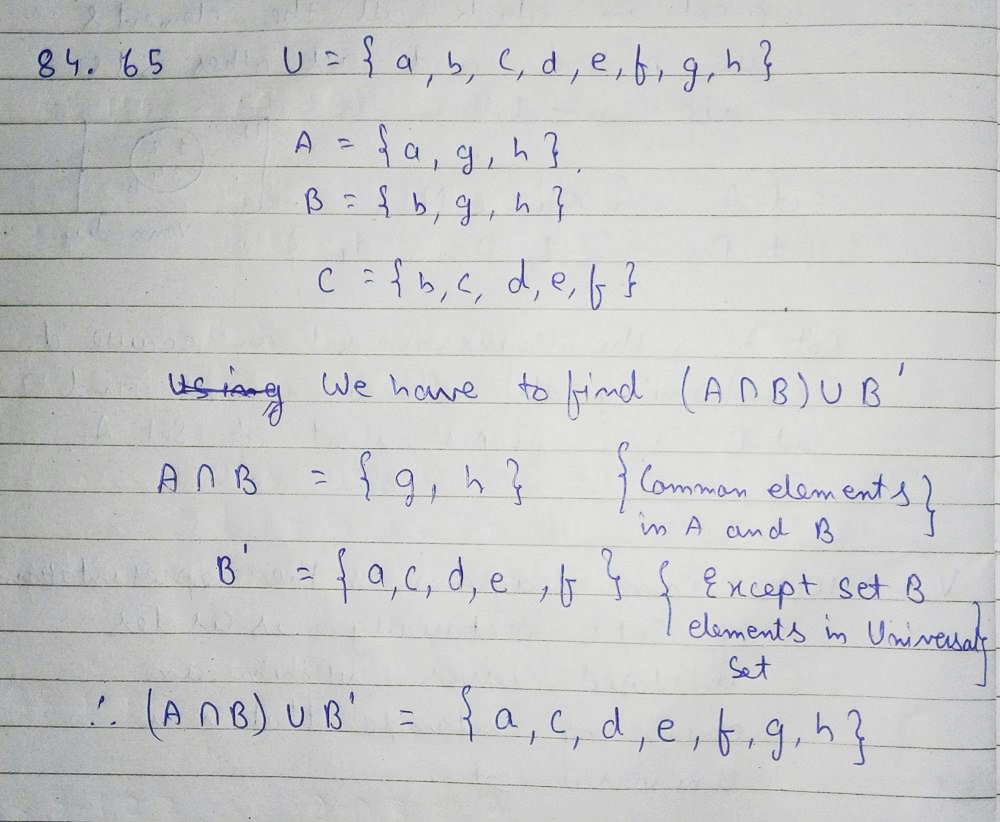 84. 65 U = { a, b, c, d, e, f, g, h }
A = { a, g, h }
B = { b, g, h }
C = { b, c, d, e, f }
Using We have to find (A ∩ B) ∪ B'
A ∩ B = { g, h } { Common elements
in A and B }
B' = { a, c, d, e, f } { Except set B
elements in Universal
set }
∴ (A ∩ B) ∪ B' = { a, c, d, e, f, g, h }